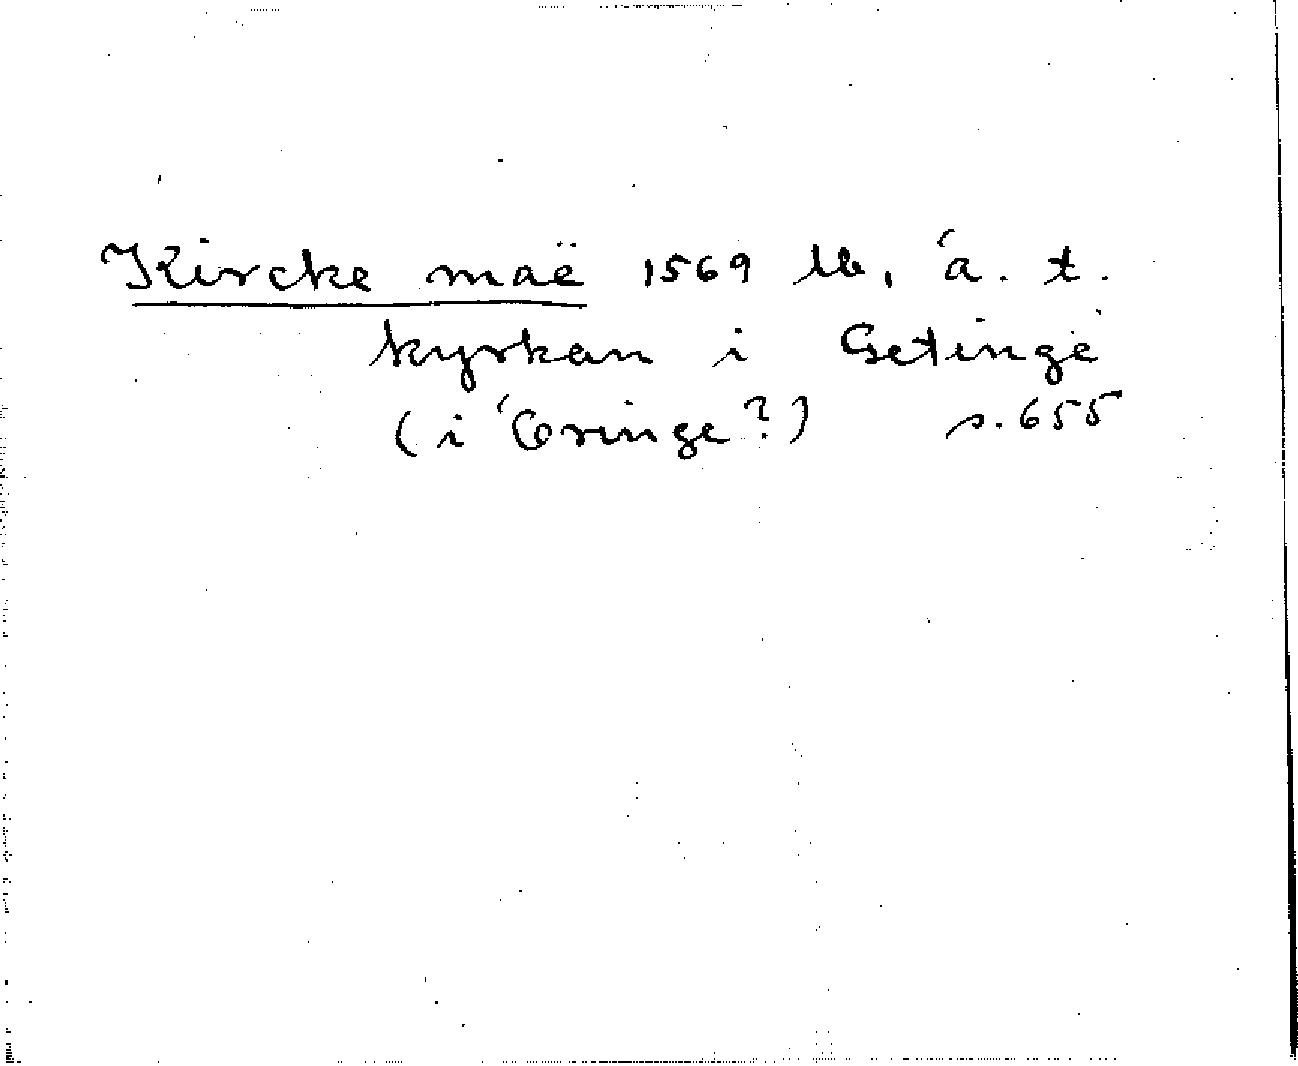 Kircke maë 1569 lb, á. t.
kyrkan i Getinge
(i Öringe?) s. 655